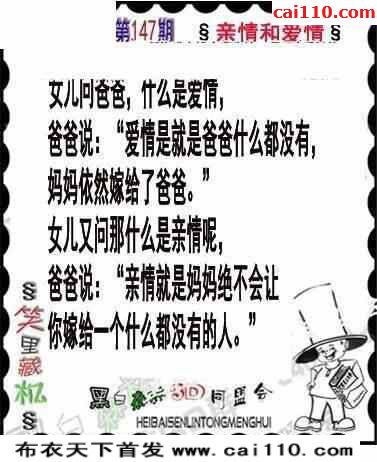 cai110.com
第147期 § 亲情和爱情 §
女儿问爸爸，什么是爱情，
爸爸说：“爱情是就是爸爸什么都没有，
妈妈依然嫁给了爸爸。”
女儿又问那什么是亲情呢，
爸爸说：“亲情就是妈妈绝不会让
你嫁给一个什么都没有的人。”
§笑里藏机§
黑白森林3D同盟会
HEIBAISENLINTONGMENGHUI
布衣天下首发 www.cai110.com